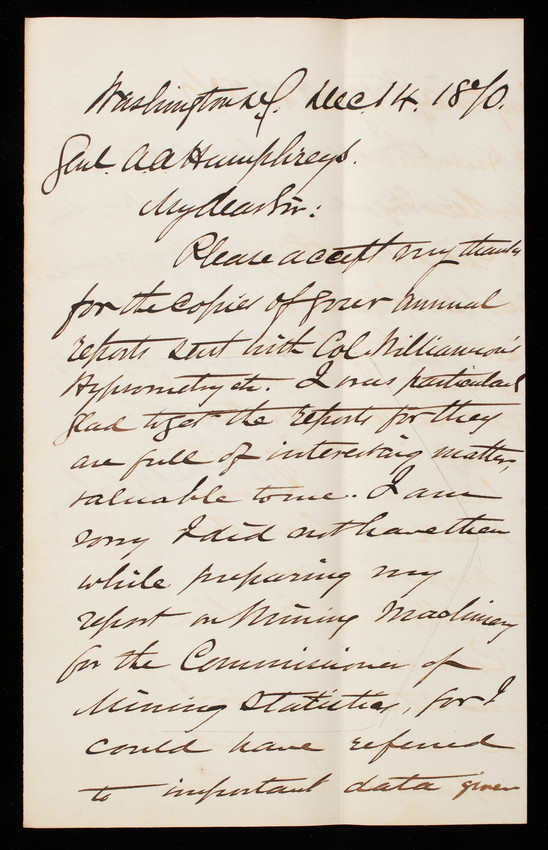 Washington D.C. Dec. 14. 1870.
Genl. A. A. Humphreys.
My dear Sir:
Please accept my thanks
for the copies of your annual
reports sent with Col. Williamson's
Hypsometry etc. I was particularly
glad to get the reports for they
are full of interesting matter,
valuable to me. I am
sorry I did not have them
while preparing my
report on Mining Machinery
for the Commissioner of
Mining Statistics, for I
could have referred
to important data given